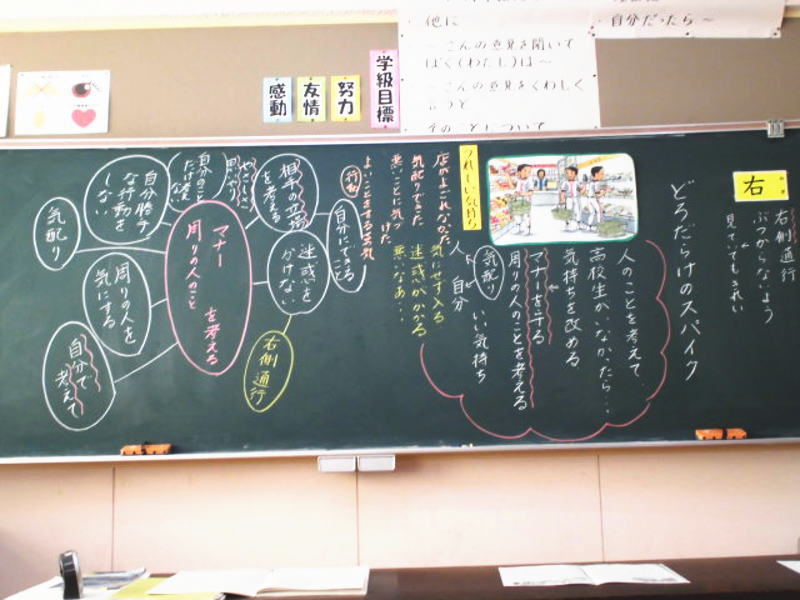 他に
〜こんの意見を聞いて
ぼく(わたし)は〜
〜こんの意見をくわしく
うと
そのことについて
自分だったら〜
学級目標
努力
友情
感動
右
右側通行
ぶつからないよう
見ていてもきれい
どろだらけのスパイク
人のことを考えて、
高校生がいなかったら…
気持ちを改める
マナーを守る
周りの人のことを考える
気配り
いい気持ち
人
自分
うれしい気持ち
店がよごれなかった
気配りできた
悪いことに気づけた
気にせず入る
迷惑がかかる
悪いなあ…
行動
よいことをする勇気
自分にできる
相手の立場を考える
迷惑をかけない
右側通行
やさしさ
思いやり
自分のことだけ考えない
マナー
周りの人のことを考える
自分勝手な行動をしない
周りの人を気にする
自分で考えて
気配り